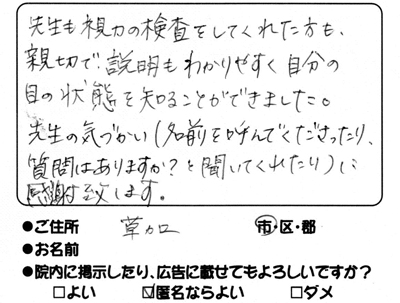 先生も視力の検査をしてくれた方も、
親切で説明もわかりやすく自分の
目の状態を知ることができました。
先生の気づかい(名前を呼んでくださったり、
質問はありますか?と聞いてくれたり)に
感謝致します。
●ご住所 草加 市・区・郡
●お名前
●院内に掲示したり、広告に載せてもよろしいですか?
□よい ☑匿名ならよい □ダメ